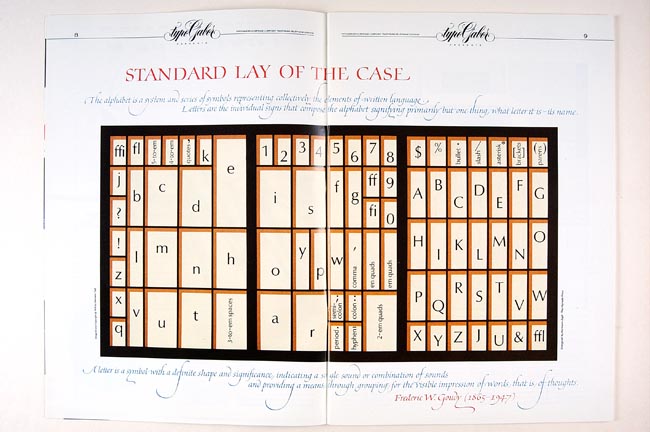 8
type Gabor
PRESENTS
type Gabor
PRESENTS
9
STANDARD LAY OF THE CASE
The alphabet is a system and series of symbols representing collectively the elements of written language.
Letters are the individual signs that compose the alphabet signifying primarily but one thing, what letter it is – its name.
ffi fl 5-to-em 4-to-em quotes k e 1 2 3 4 5 6 7 8 $ % bullet • slash / asterisk * brackets [] parens ()
j b c d i s f g ff 9 A B C D E F G
? fi 0
! l m n h o y p w , comma en quads em quads H I K L M N O
z
x v u t 3-to-em spaces a r semi-colon ; colon : 2-em quads P Q R S T V W
q period . hyphen - X Y Z J U & ffl
A letter is a symbol with a definite shape and significance, indicating a single sound or combination of sounds
and providing a means, through grouping, for the visible impression of words, that is, of thoughts.
Frederic W. Goudy (1865-1947)